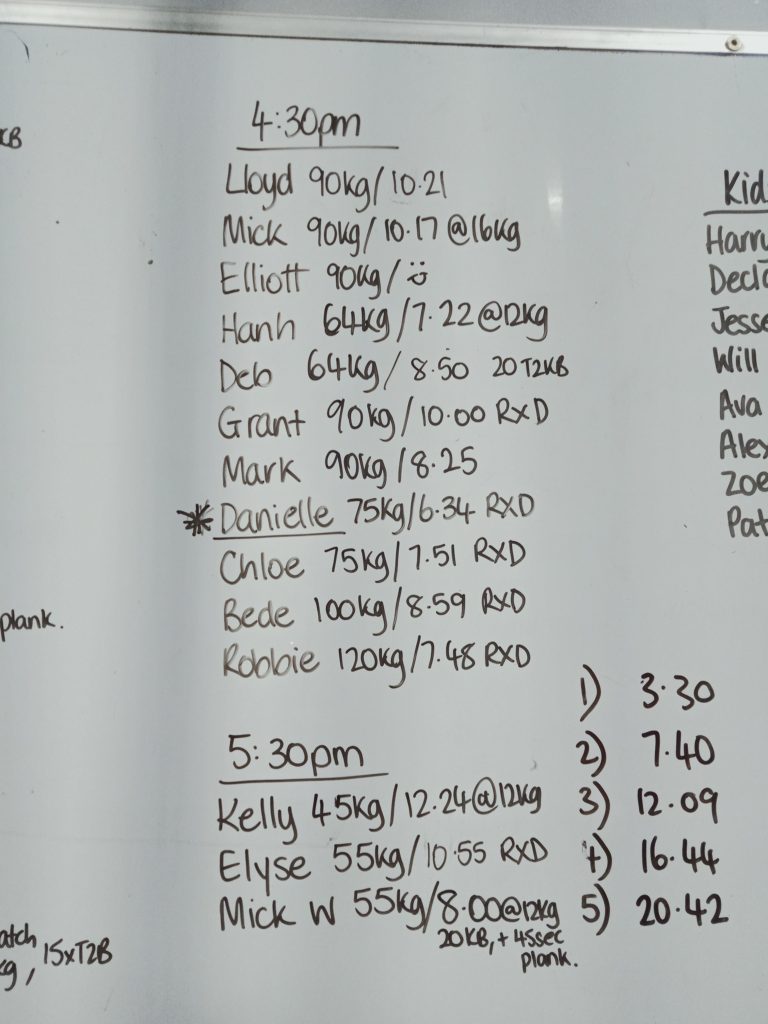 KB
4:30pm
Lloyd 90kg/10.21
Mick 90kg/10.17 @16kg
Elliott 90kg/
Hanh 64kg/7.22 @12kg
Deb 64kg/8.50 20 T2KB
Grant 90kg/10.00 RXD
Mark 90kg/8.25
* Danielle 75kg/6.34 RXD
Chloe 75kg/7.51 RXD
Bede 100kg/8.59 RXD
Robbie 120kg/7.48 RXD
plank.
5:30pm
Kelly 45kg/12.24@12kg
Elyse 55kg/10.55 RXD
Mick W 55kg/8.00@12kg
20KB, + 45sec
plank.
atch
kg, 15xT2B
1) 3.30
2) 7.40
3) 12.09
4) 16.44
5) 20.42
Kid
Harry
Decla
Jesse
Will
Ava
Alex
Zoe
Pat